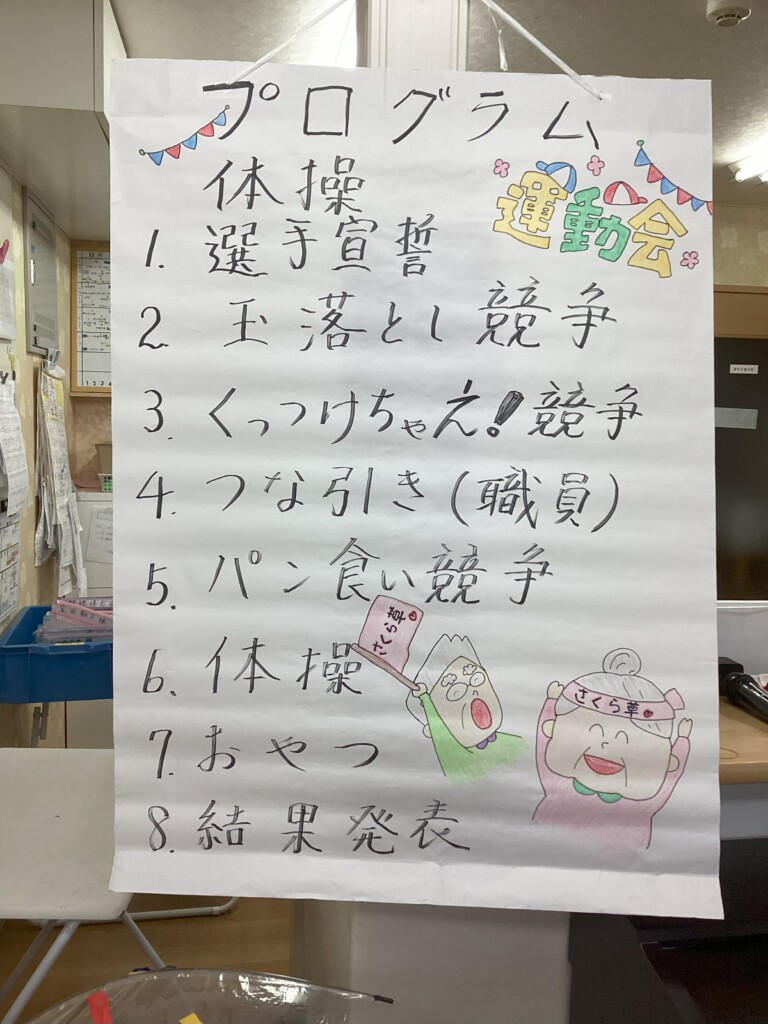 プログラム
運動会
体操
1. 選手宣誓
2. 玉落とし競争
3. くっつけちゃえ!競争
4. つな引き(職員)
5. パン食い競争
6. 体操
7. おやつ
8. 結果発表
さくら草
さくら草